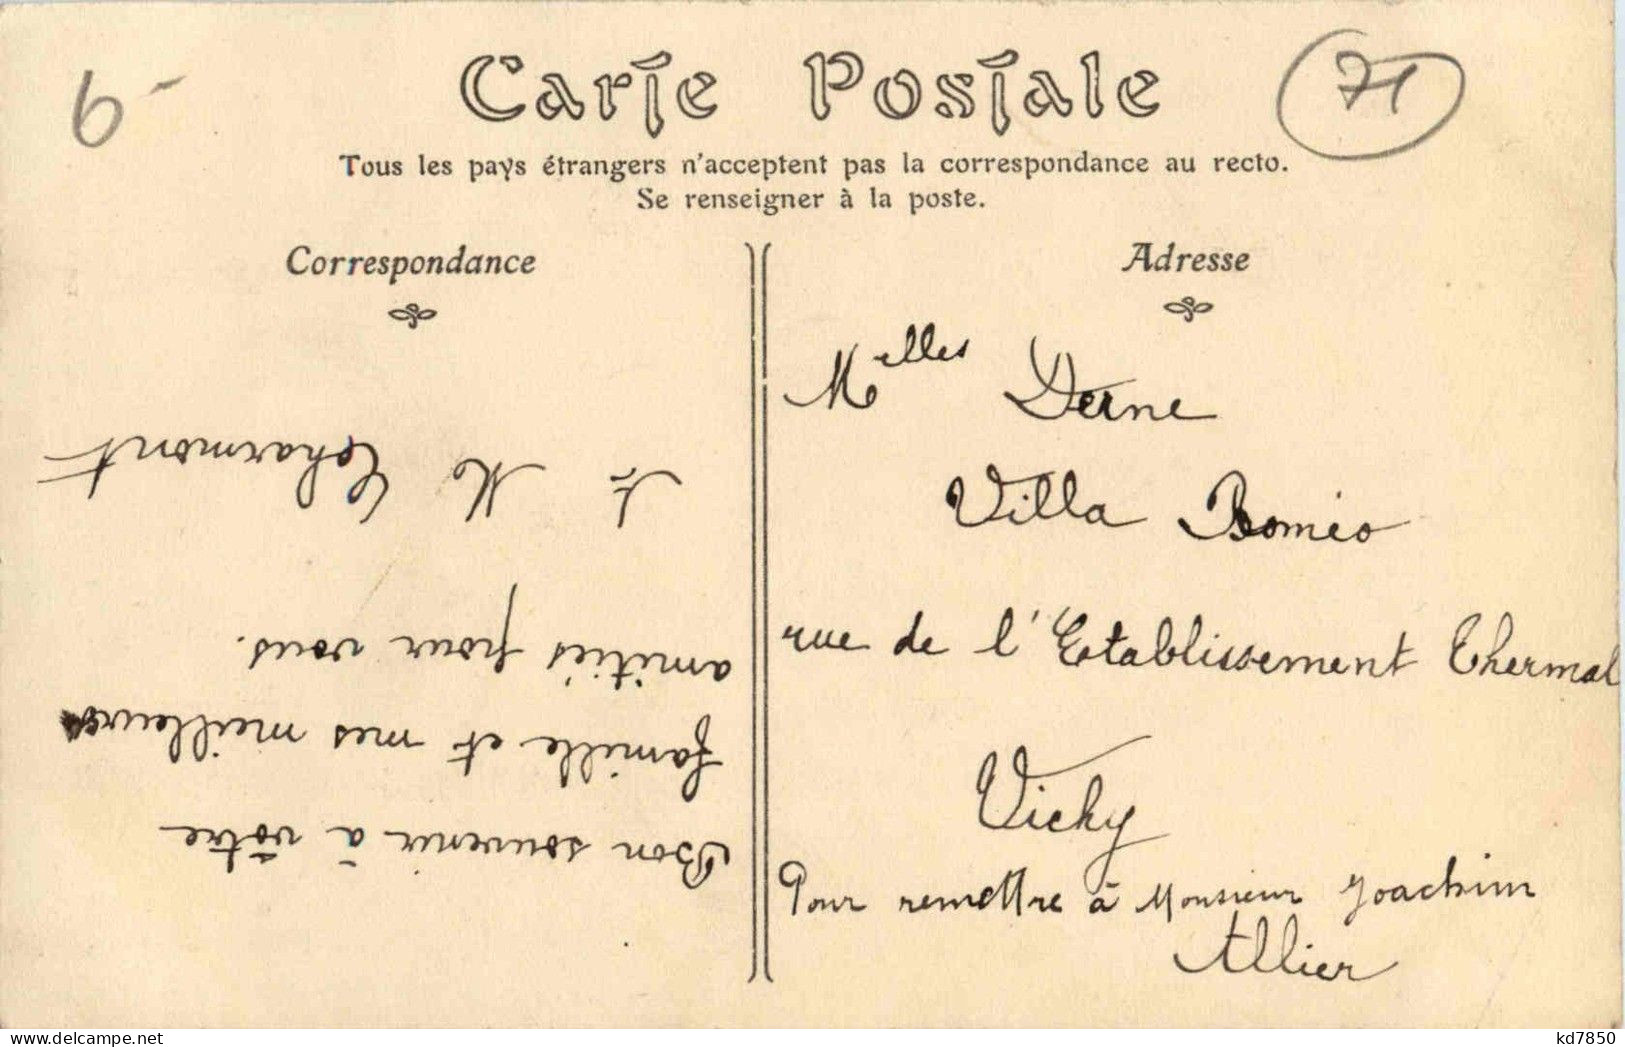 6-
Carte Postale
71
Tous les pays étrangers n'acceptent pas la correspondance au recto.
Se renseigner à la poste.
Correspondance
Adresse
Bon souvenir à vôtre
famille et mes meilleures
amitiés pour vous.
M Charmont
Melles Derne
Villa Roméo
rue de l'Etablissement Thermal
Vichy
Pour remettre à Monsieur Joachim
Allier
kd7850